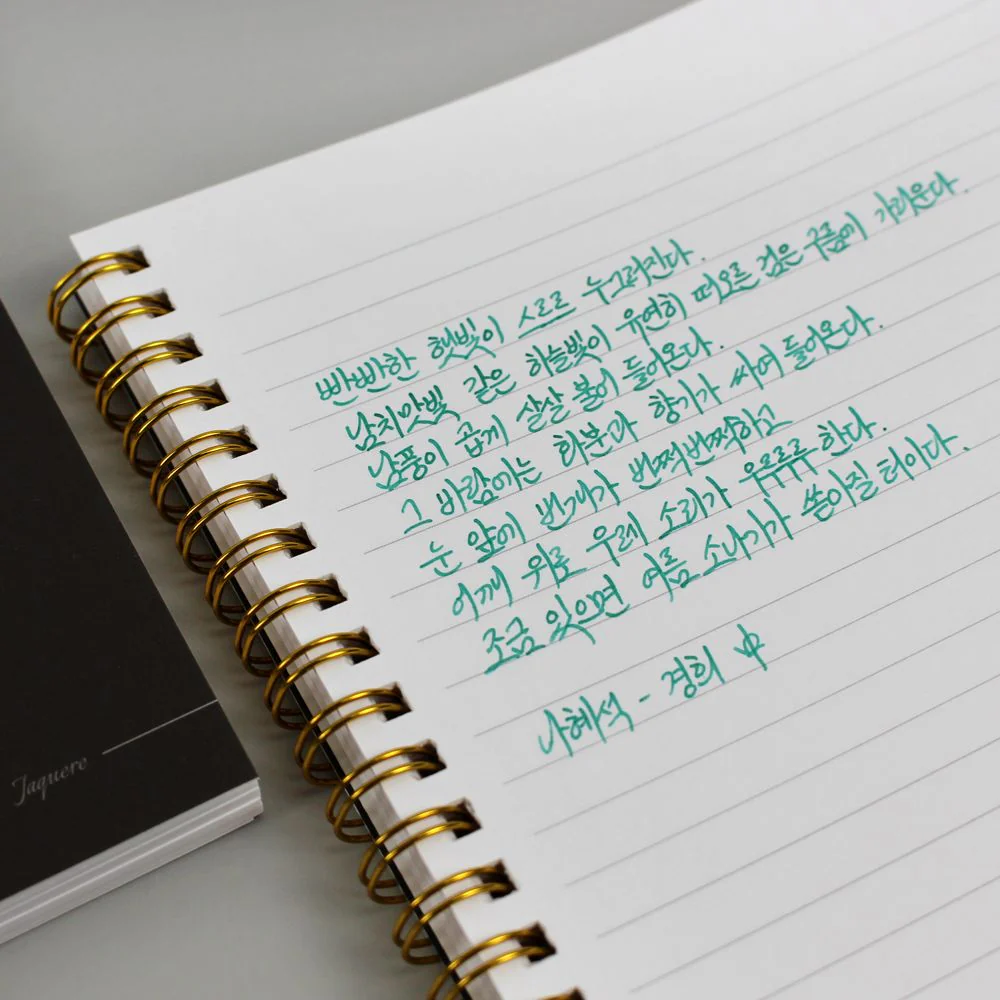 빤빤한 햇빛이 스르르 누그러진다.
남치맛빛 같은 하늘빛이 유연히 떠오른 검은 구름에 가리운다.
남풍이 곱게 살살 불어 들어온다.
그 바람에는 화분과 향기가 싸여 들어온다.
눈 앞에 번개가 번쩍번쩍하고
어깨 위로 우레 소리가 우르르르 한다.
조금 있으면 여름 소나기가 쏟아질 터이다.
나혜석 - 경희 中
Jaquere